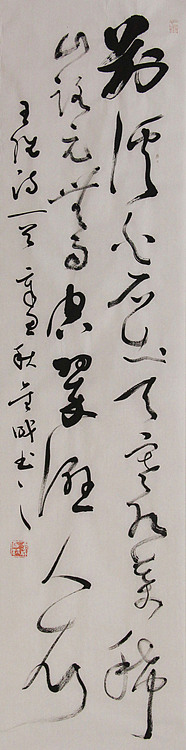 荆溪白石出天寒紅葉稀
山路元無雨空翠濕人衣
王維詩一首 辛 秋 書